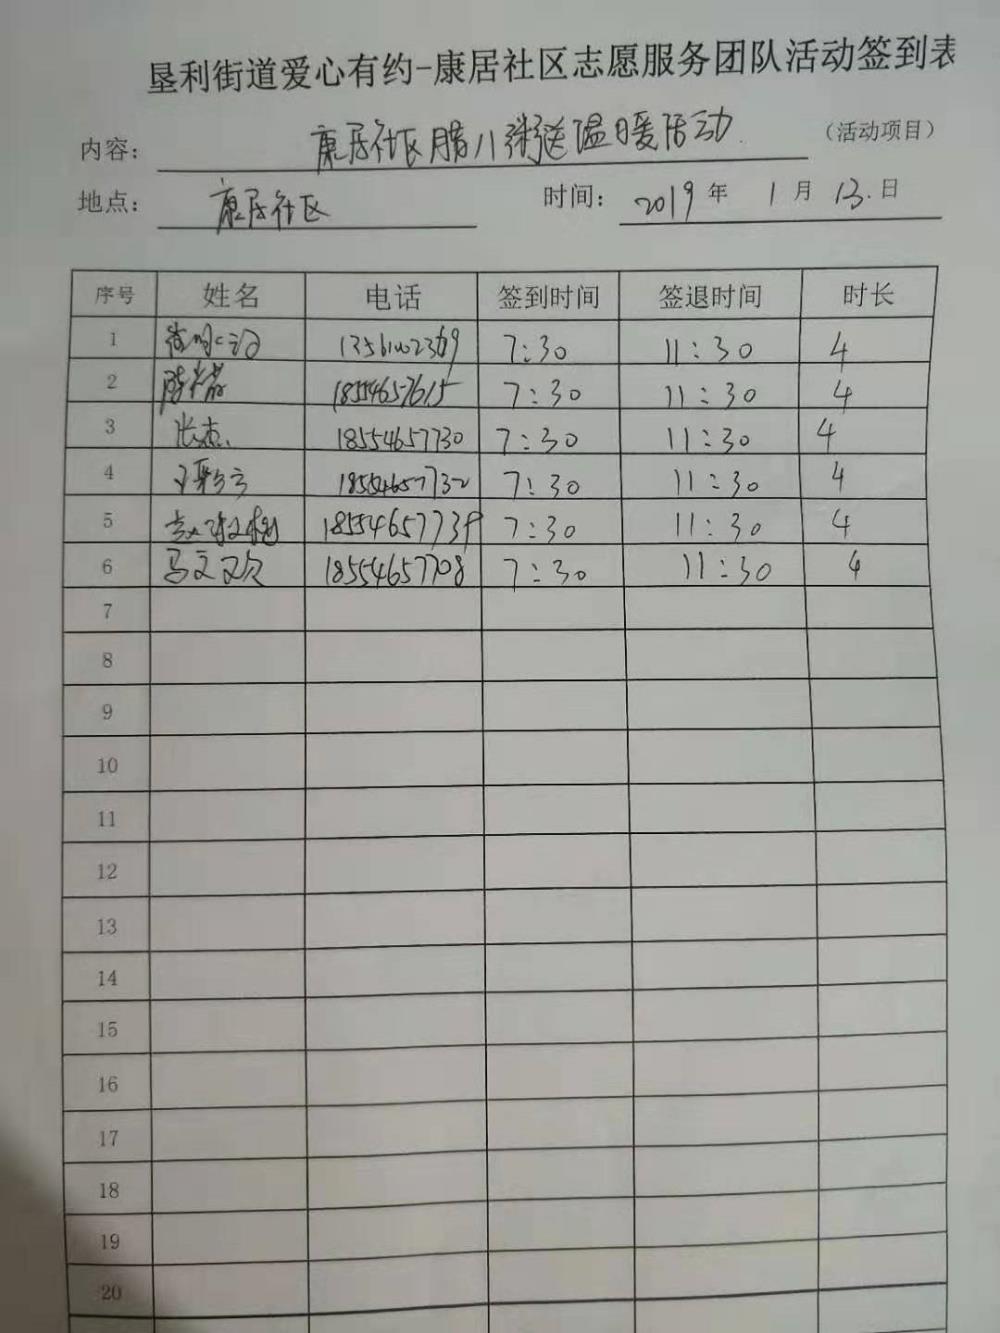 垦利街道爱心有约-康居社区志愿服务团队活动签到表
内容： 康居社区腊八粥送温暖活动 （活动项目）
地点： 康居社区 时间： 2019 年 1 月 13 日
序号 姓名 电话 签到时间 签退时间 时长
1 7:30 11:30 4
2 18554657615 7:30 11:30 4
3 张杰 18554657730 7:30 11:30 4
4 18554657732 7:30 11:30 4
5 18554657739 7:30 11:30 4
6 18554657708 7:30 11:30 4
7
8
9
10
11
12
13
14
15
16
17
18
19
20